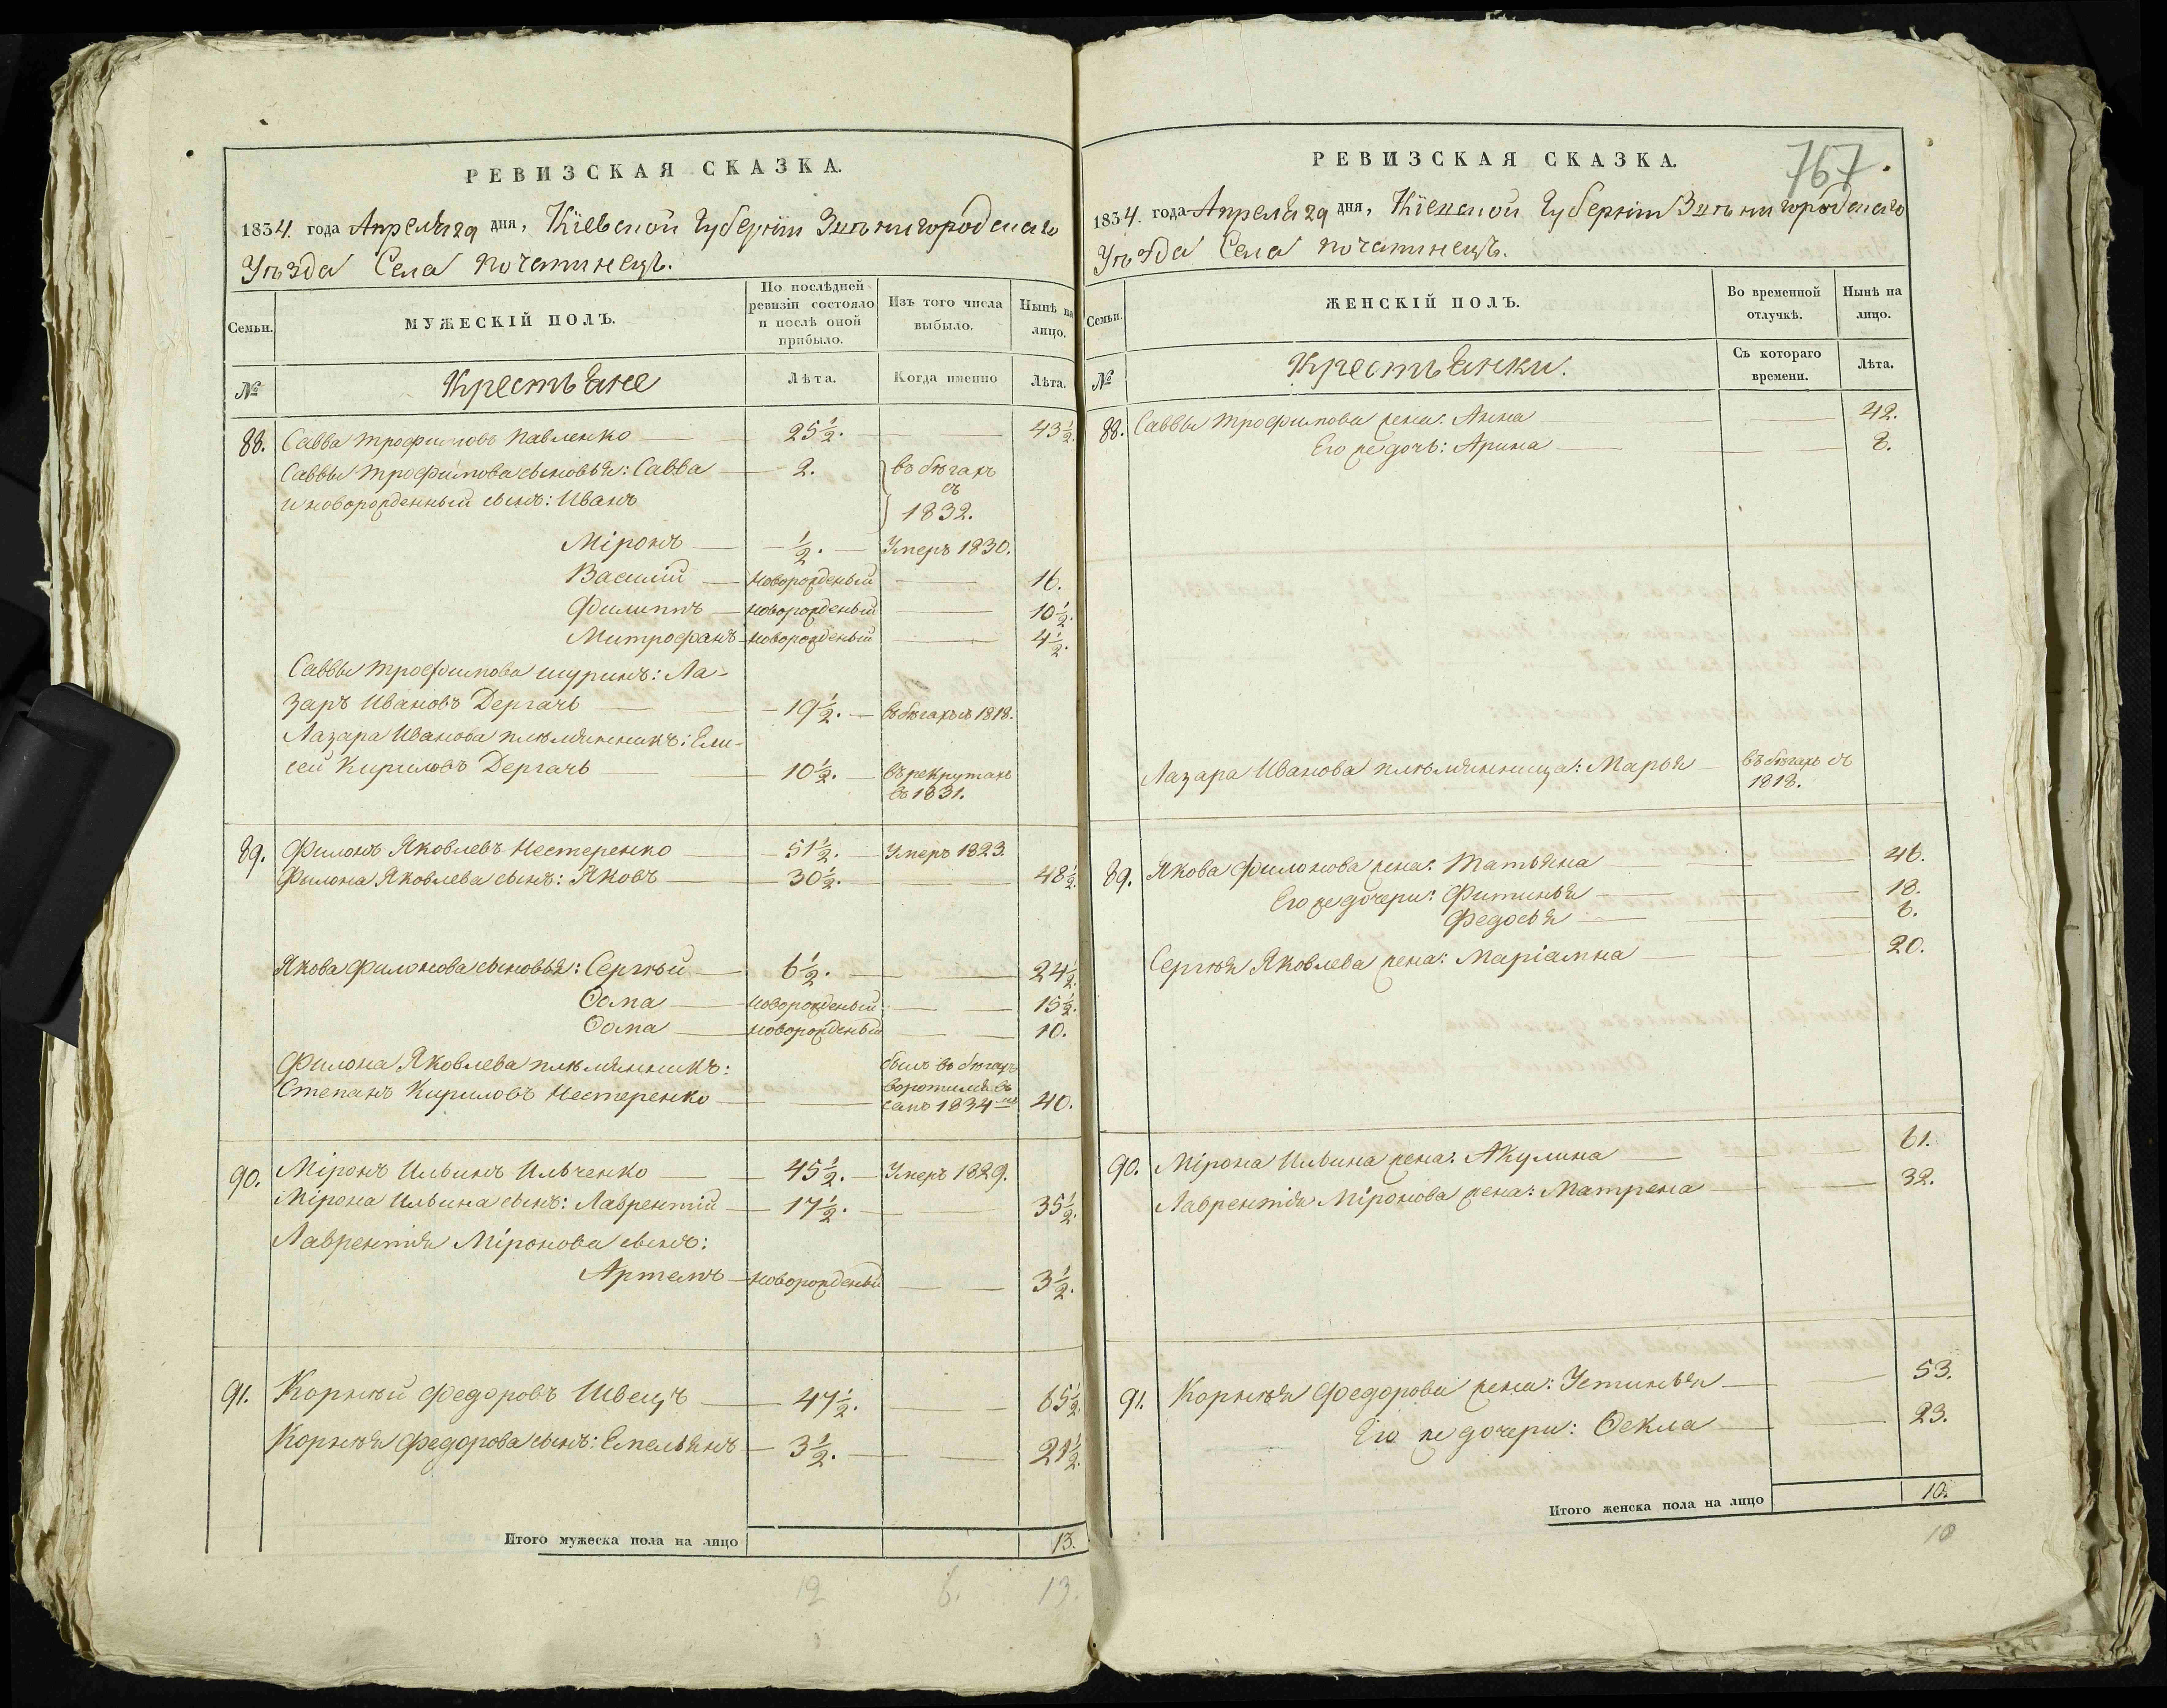 РЕВИЗСКАЯ СКАЗКА.
1834. года Апреля 29 дня, Кіевской Губерніи Звѣнигородскаго
Уѣзда Села Почапинецъ.
Семьи.
МУЖЕСКІЙ ПОЛЪ.
По послѣдней ревизіи состояло и послѣ оной прибыло.
Изъ того числа выбыло.
Нынѣ на лицо.
№
Крестьяне
Лѣта.
Когда именно
Лѣта.
88. Савва Трофимовъ Павленко 25½. 43½.
Саввы Трофимова сыновья: Савва 2. въ бѣгахъ
и новорожденный сынъ: Иванъ съ 1832.
Міронъ ½. Умеръ 1830.
Василій новорожденый 16.
Филиппъ новорожденый 10½.
Митрофанъ новорожденый 4½.
Саввы Трофимова шуринъ: Ла-
заръ Ивановъ Дергачь 19½. въ бѣгахъ съ 1818.
Лазара Иванова племянникъ: Ели-
сей Кириловъ Дергачь 10½. въ рекрутахъ
въ 1831.
89. Филонъ Яковлевъ Нестеренко 51½. Умеръ 1823.
Филона Яковлева сынъ: Яковъ 30½. 48½.
Якова Филонова сыновья: Сергѣй 6½. 24½.
Ѳома новорожденый 15½.
Ѳома новорожденый 10.
Филона Яковлева племянникъ: былъ въ бѣгахъ
Степанъ Кириловъ Нестеренко 40.
1834
90. Міронъ Ильинъ Ильченко 45½. Умеръ 1829.
Мірона Ильина сынъ: Лаврентій 17½. 35½.
Лаврентія Міронова сынъ:
Артемъ новорожденый 3½.
91. Корнѣй Федоровъ Швецъ 47½. 65½.
Корнѣя Федорова сынъ: Емельянъ 3½. 21½.
Итого мужеска пола на лицо 13.
12 6. 13.
РЕВИЗСКАЯ СКАЗКА.
767
1834. года Апреля 29 дня, Кіевской Губерніи Звѣнигородскаго
Уѣзда Села Почапинецъ.
Семьи.
ЖЕНСКІЙ ПОЛЪ.
Во временной отлучкѣ.
Нынѣ на лицо.
№
Крестьянки.
Съ котораго времени.
Лѣта.
88. Саввы Трофимова жена: Анна 42.
Его же дочь: Арина 8.
Лазара Иванова племянница: Марья въ бѣгахъ съ
1818.
89. Якова Филонова жена: Татьяна 46.
Его же дочери: Фитинья 18.
Федосья 6.
Сергѣя Яковлева жена: Маріамна 20.
90. Мірона Ильина жена: Акулина 61.
Лаврентія Міронова жена: Матрена 32.
91. Корнѣя Федорова жена: Устинья 53.
Его же дочери: Ѳекла 23.
Итого женска пола на лицо 10.
10